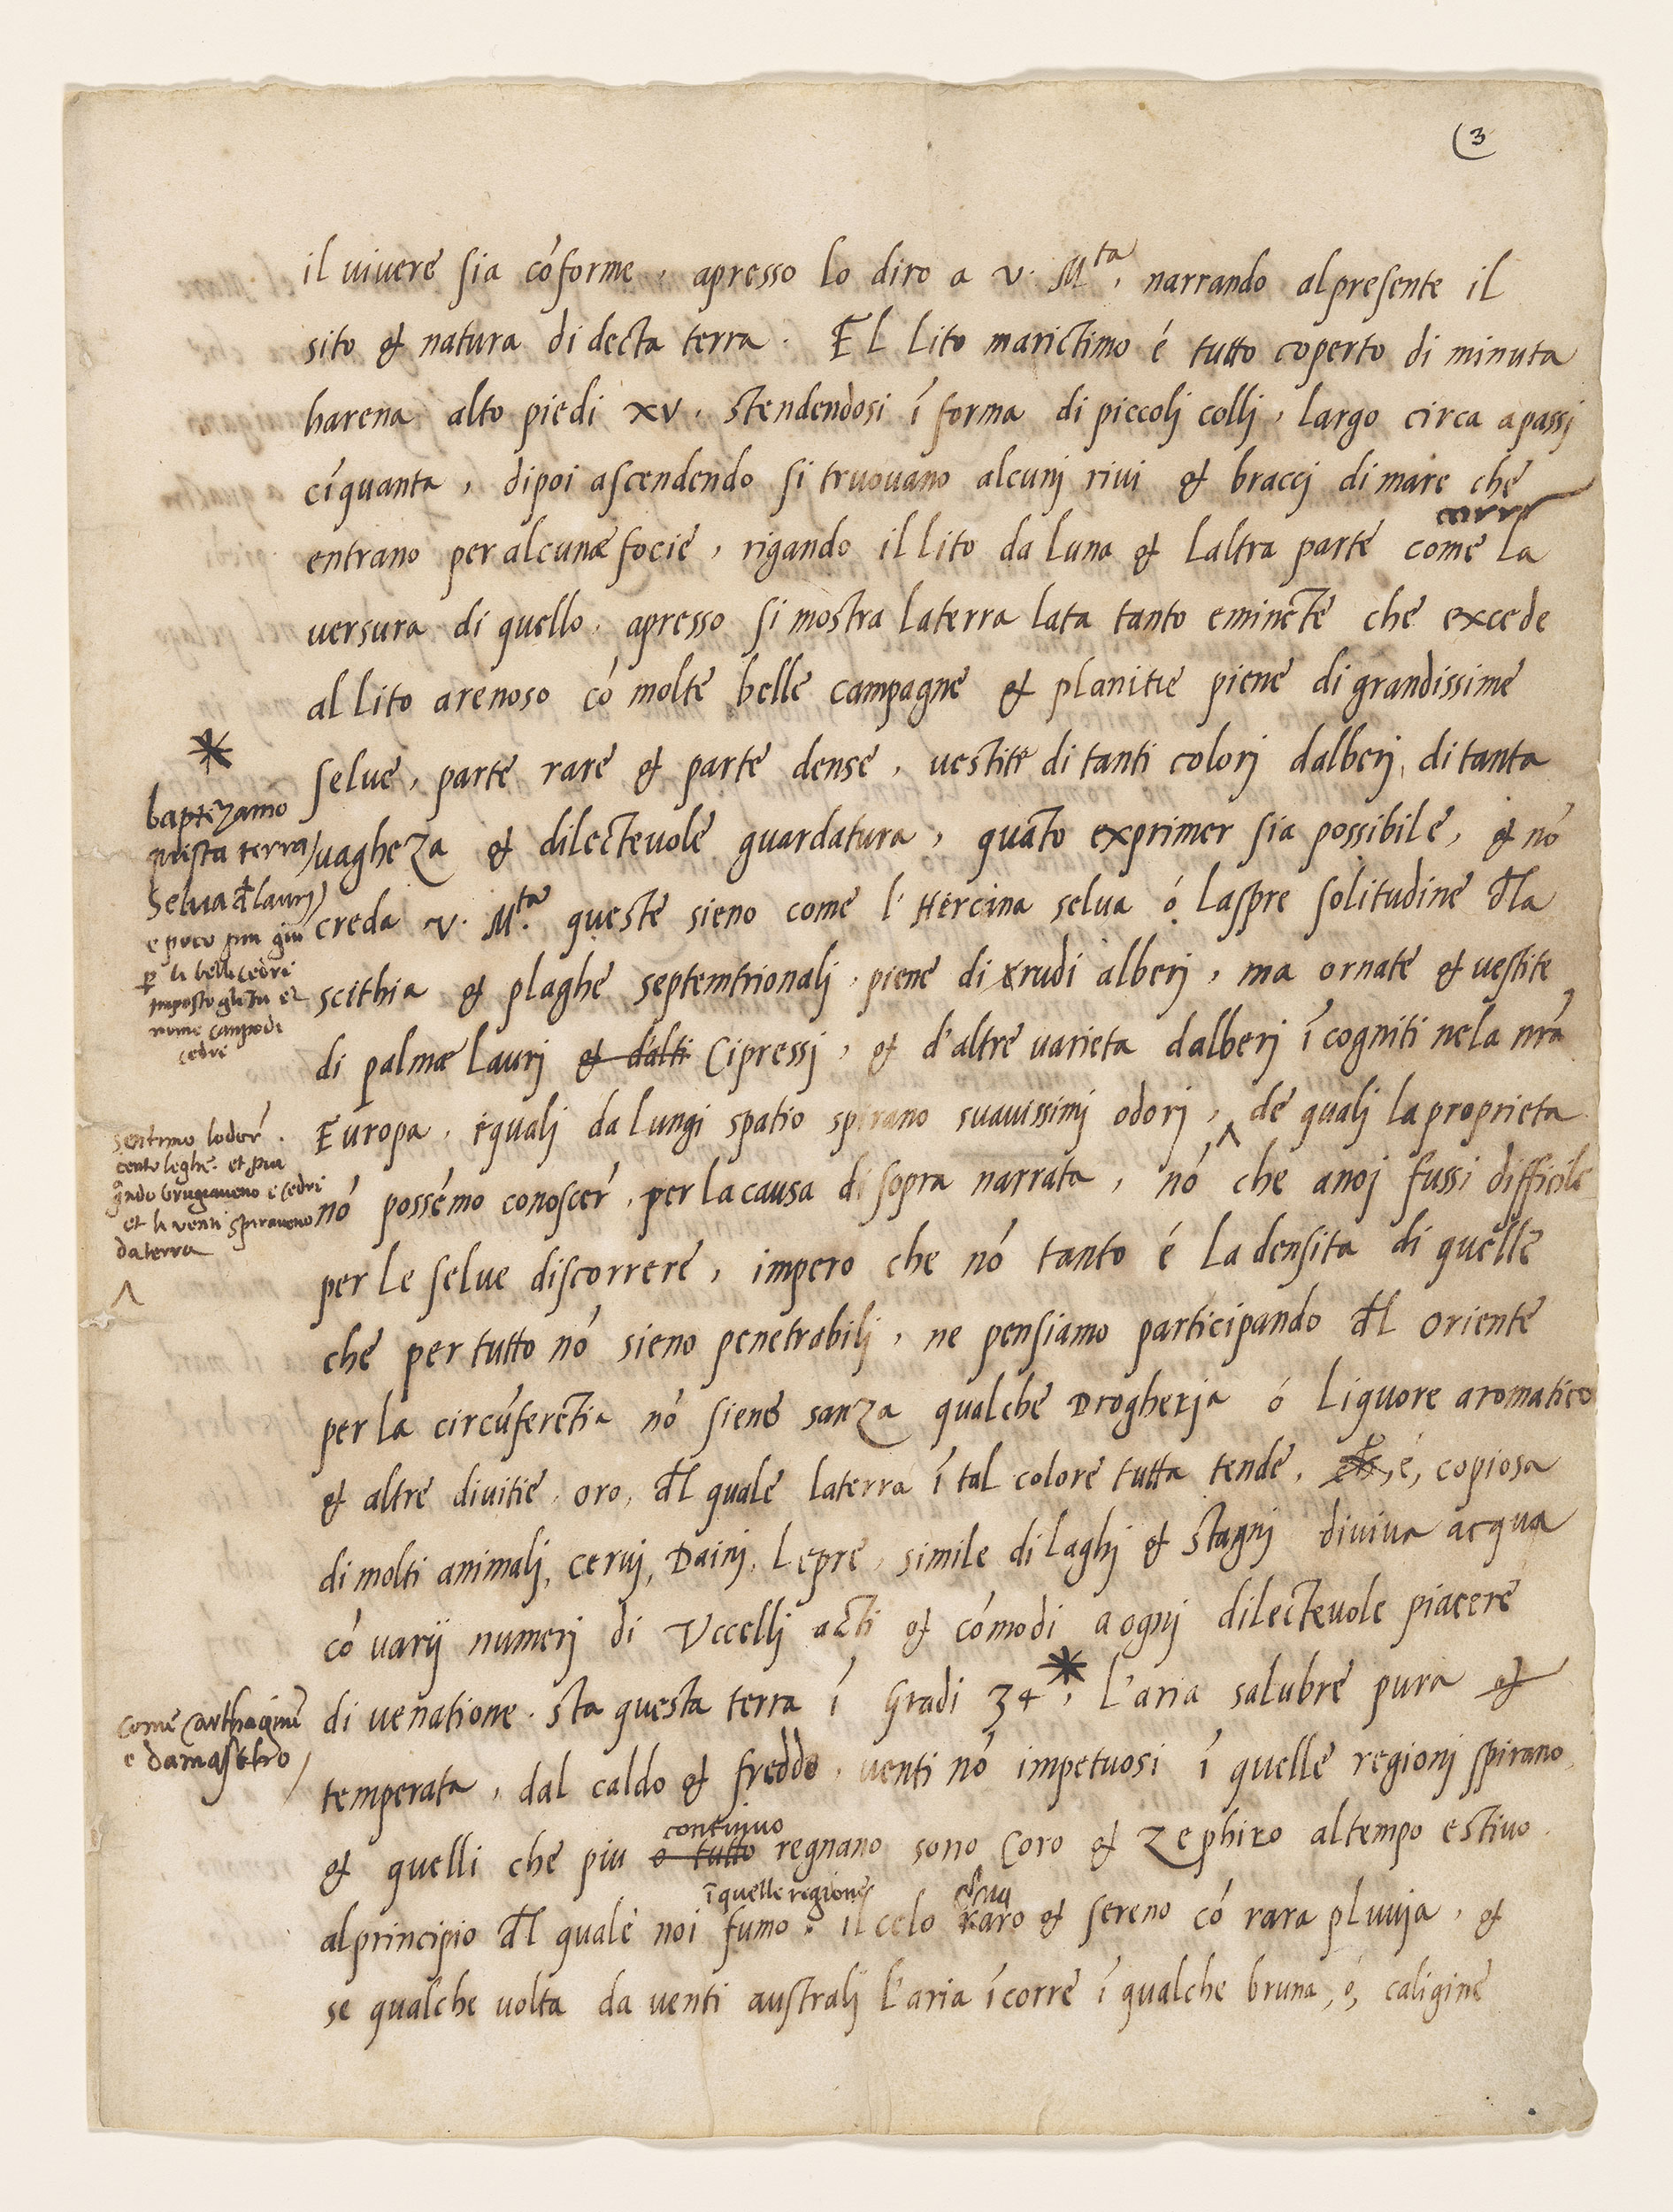 3
il vivere sia cóforme, apresso lo diro a v. M.ta, narrando alpresente il
sito & natura di decta terra. El lito marictimo é tutto coperto di minuta
harena alto piedi xv, stendendosi ī forma di piccolj collj, largo circa a passi
cīquanta, dipoi ascendendo si truovano alcunj rivi & braccj di mare che
entrano per alcunæ focie, rigando il lito da luna & laltra parte come la
versura di quello. apresso si mostra la terra lata tanto eminēte che excede
al lito arenoso có molte belle campagne & planitie piene di grandissime
selve, parte rare & parte dense, vestite di tanti colorj dalberj, di tanta
vagheza & dilectevole guardatura, quāto exprimer sia possibile, & nó
creda v. M.ta queste sieno come l'Hercina selva ó laspre solitudine dla
scithia & plaghe septemtrionalj piene di rudi alberj, ma ornate & vestite
di palmæ Laurj & dalti Cipressj, & d'altre varieta dalberj ī cogniti nela nrā
Europa, iqualj da lungi spatio spirano suavissimj odorj, de quali la proprieta
nó possémo conoscer, per la causa di sopra narrata, nó che anoj fussi difficile
per le selve discorrere, impero che nó tanto é la densita di quelle
che per tutto nó sieno penetrabilj, ne pensiamo participando dl oriente
per la circúferētia nó sieno sanza qualche Drogherja ó liquore aromatico
& altre divitie, oro, dl quale laterra ī tal colore tutta tende, é, copiosa
di molti animalj, cervj, Dainj, Lepre, simile di laghj & stagnj di viva acqua
có varij numerj di Uccellj acti & cómodi a ognj dilectevole piacere
di venatione. sta questa terra ī Gradi 34*, L'aria salubre pura &
temperata, dal caldo & freddo, venti nó impetuosi ī quelle regionj spirano,
continuo
& quelli che piu o tutto regnano sono Coro & Zephiro al tempo estivo.
ī quelle regione
al principio dl quale noi fumo, il celo raro & sereno có rara pluvja, &
se qualche volta da venti australj l'aria īcorre ī qualche bruna, ó, caligine
*
baptezamo
questa terra
Selva d laurj
e poco piu giu
p li belli cedri
imposto gli fu el
nome campo di
cedri
sentimo lodor
cento leghe et piu
qndo brugiaveno e cedri
et li venti spiraveno
da terra
come Carthagine
e damasco